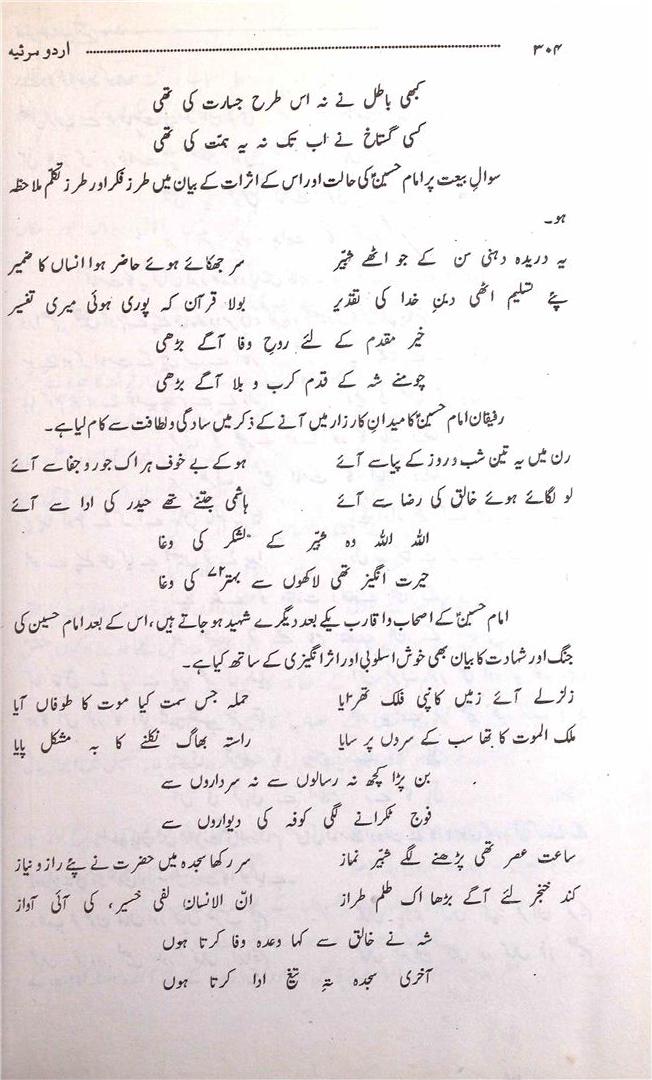 ۳۰۴ اردو مرثیہ
کبھی باطل نے نہ اس طرح جسارت کی تھی
کسی گستاخ نے اب تک نہ یہ ہمّت کی تھی
سوالِ بیعت پر امام حسینؑ کی حالت اور اس کے اثرات کے بیان میں طرز فکر اور طرز تکلّم ملاحظہ
ہو۔
یہ دریدہ دہنی سن کے جو اٹھے شبّیر سر جھکائے ہوئے حاضر ہوا انساں کا ضمیر
پئے تسلیم اٹھی دینِ خدا کی تقدیر بولا قرآن کہ پوری ہوئی میری تفسیر
خیر مقدم کے لئے روحِ وفا آگے بڑھی
چومنے شہ کے قدم کرب و بلا آگے بڑھی
رفیقان امام حسینؑ کا میدانِ کارزار میں آنے کے ذکر میں سادگی و لطافت سے کام لیا ہے۔
رن میں یہ تین شب و روز کے پیاسے آئے ہو کے بے خوف ہر اک جور و جفا سے آئے
لو لگائے ہوئے خالق کی رضا سے آئے ہاشمی جتنے تھے حیدر کی ادا سے آئے
اللہ اللہ وہ شبّیر کے لشکر کی وغا
حیرت انگیز تھی لاکھوں سے بہتر۷۲ کی وغا
امام حسینؑ کے اصحاب و اقارب یکے بعد دیگرے شہید ہو جاتے ہیں، اس کے بعد امام حسین کی
جنگ اور شہادت کا بیان بھی خوش اسلوبی اور اثر انگیزی کے ساتھ کیا ہے۔
زلزلے آئے زمیں کانپی فلک تھرّایا حملہ جس سمت کیا موت کا طوفاں آیا
ملک الموت کا تھا سب کے سروں پر سایا راستہ بھاگ نکلنے کا بہ مشکل پایا
بن پڑا کچھ نہ رسالوں سے نہ سرداروں سے
فوج ٹکرانے لگی کوفہ کی دیواروں سے
ساعت عصر تھی پڑھنے لگے شبّیر نماز سر رکھا سجدہ میں حضرت نے پئے راز و نیاز
کند خنجر لئے آگے بڑھا اک ظلم طراز انّ الانسان لفی خسیر، کی آئی آواز
شہ نے خالق سے کہا وعدہ وفا کرتا ہوں
آخری سجدہ تہِ تیغ ادا کرتا ہوں